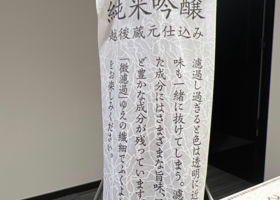 純米吟醸
越後蔵元仕込み
濾過し過ぎると色は透明に近
味も一緒に抜けてしまう。濾
た成分にはさまざまな旨味、
ど豊かな成分が残っています
「微濾過」ゆえの繊細でふくよ
をお楽しみください。